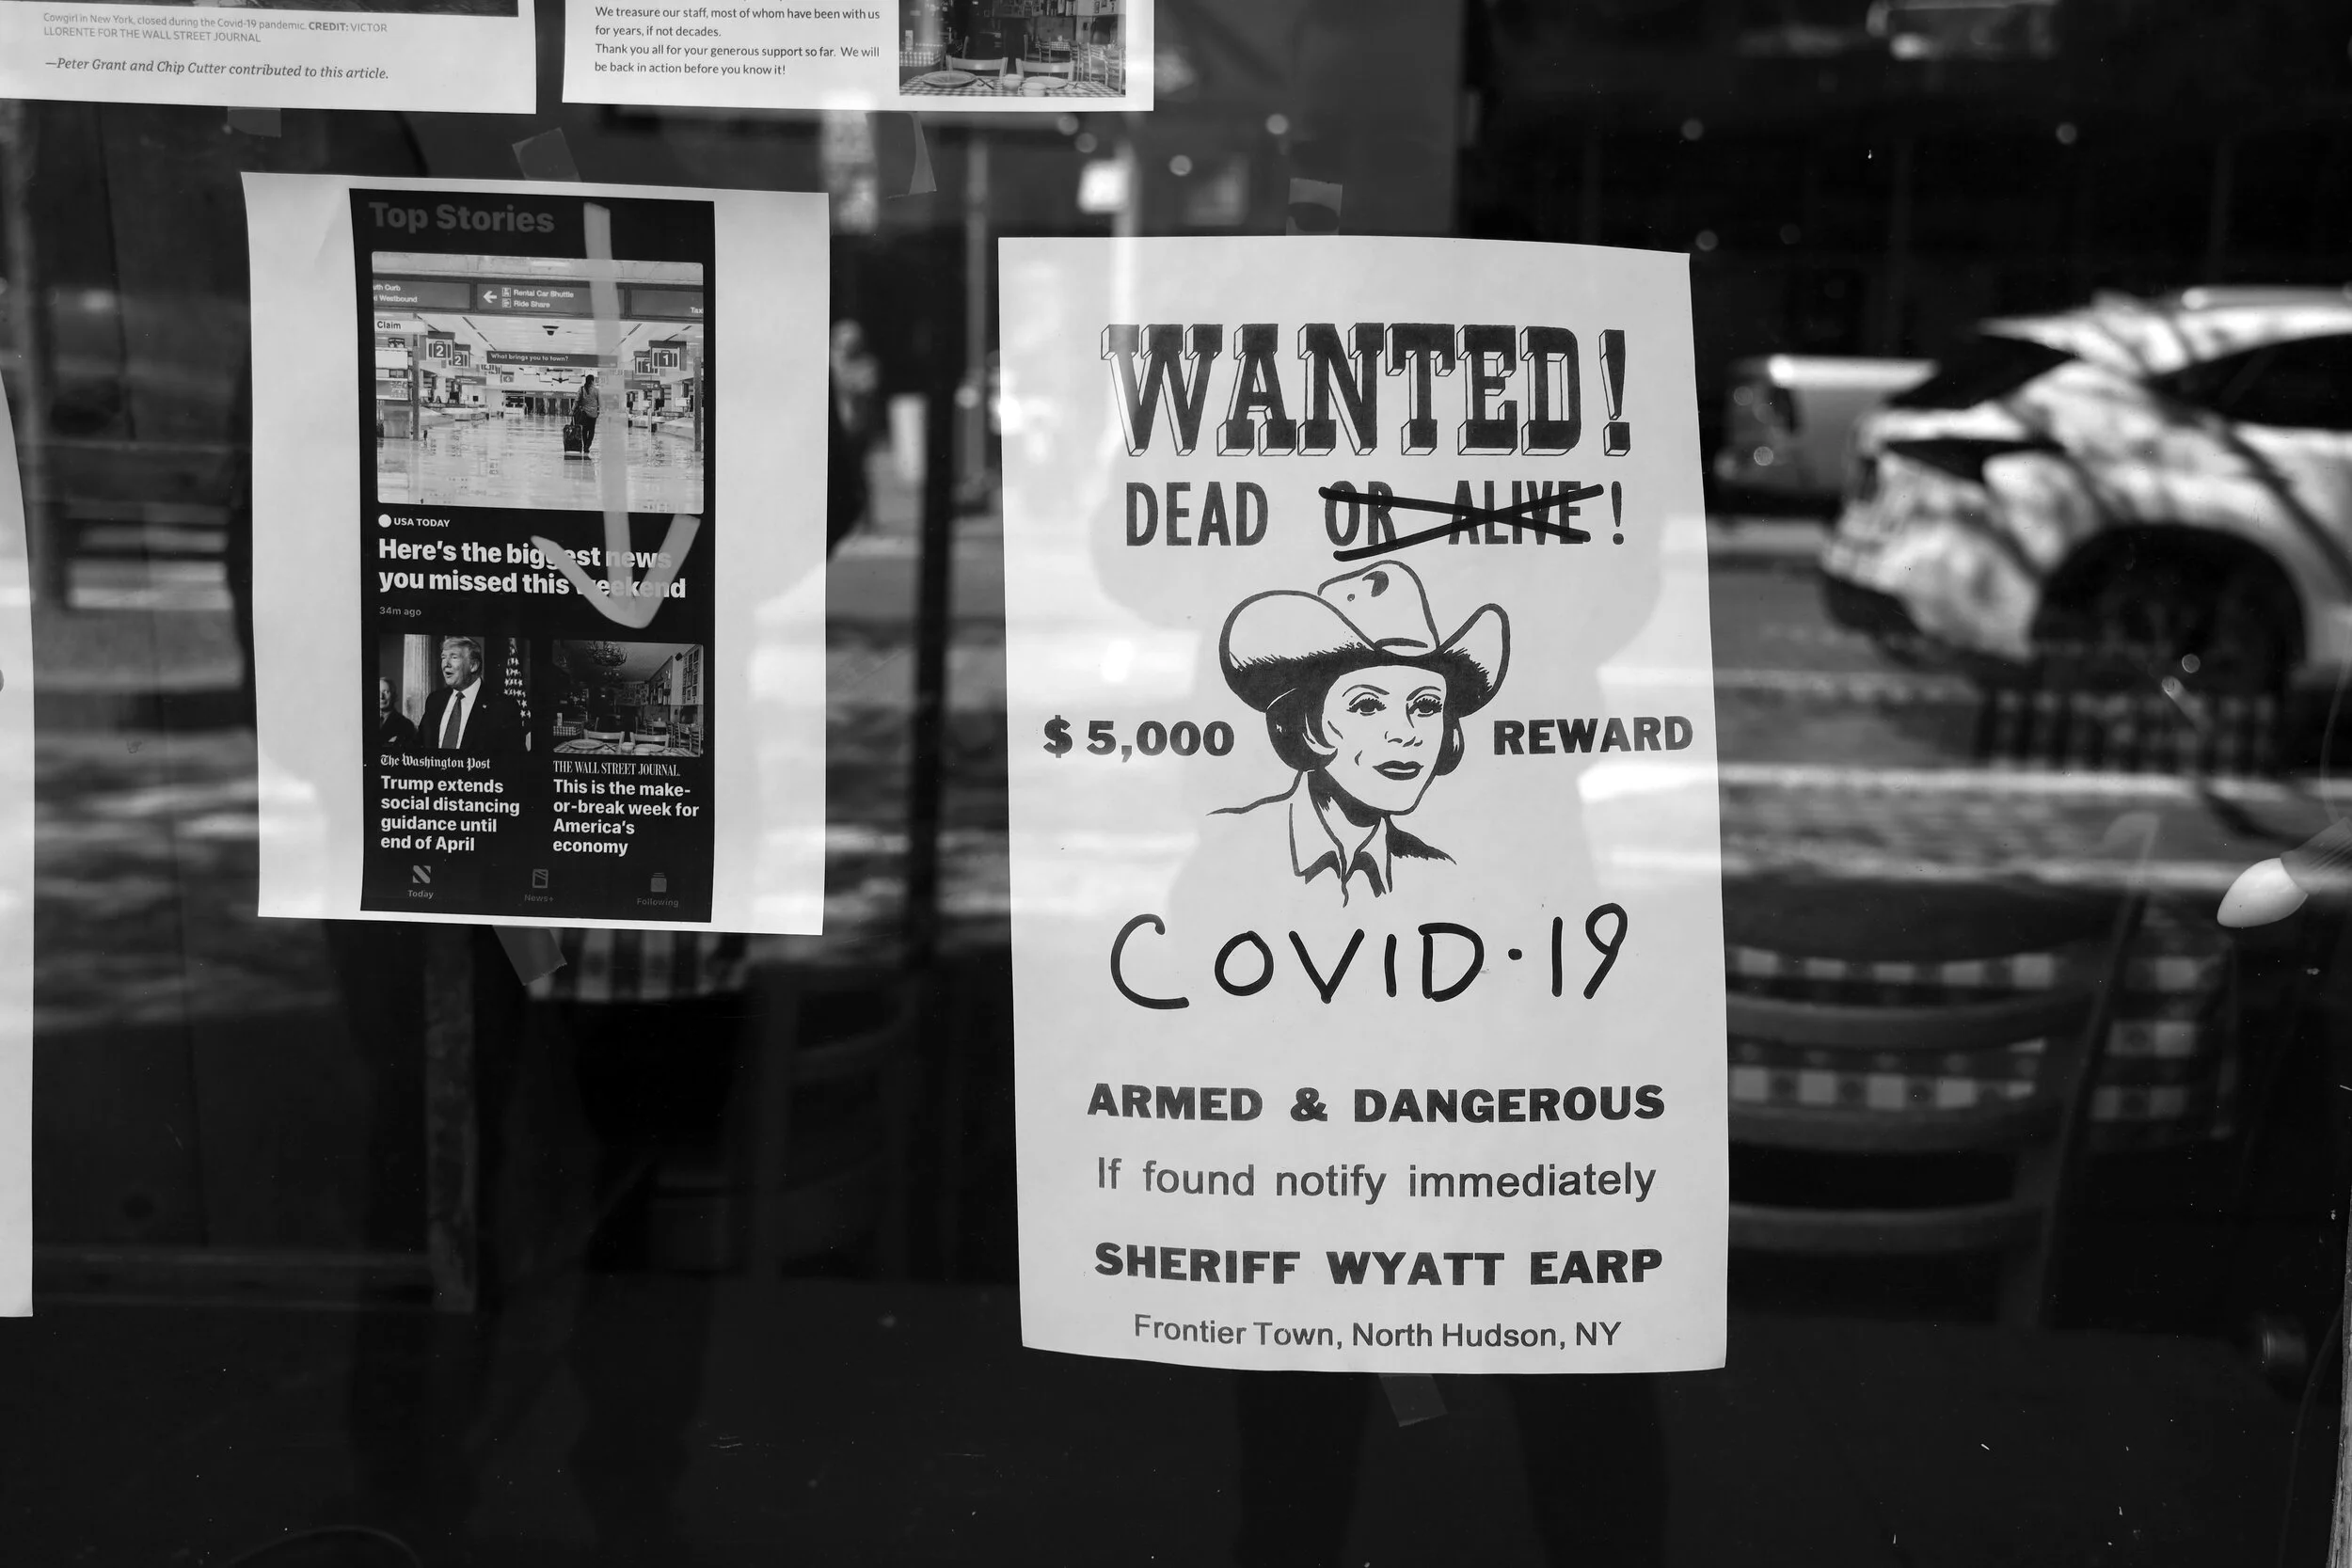 Cowgirl in New York, closed during the Covid-19 pandemic. CREDIT: VICTOR
LLORENTE FOR THE WALL STREET JOURNAL
—Peter Grant and Chip Cutter contributed to this article.
We treasure our staff, most of whom have been with us
for years, if not decades.
Thank you all for your generous support so far. We will
be back in action before you know it!
Top Stories
uth Curb
Westbound
Rental Car Shuttle
Ride Share
Taxi
Claim
2
2
What brings you to town?
1
USA TODAY
Here's the biggest news
you missed this weekend
34m ago
The Washington Post
Trump extends
social distancing
guidance until
end of April
THE WALL STREET JOURNAL.
This is the make-
or-break week for
America's
economy
Today
News+
Following
WANTED!
DEAD OR ALIVE!
$5,000 REWARD
COVID·19
ARMED & DANGEROUS
If found notify immediately
SHERIFF WYATT EARP
Frontier Town, North Hudson, NY